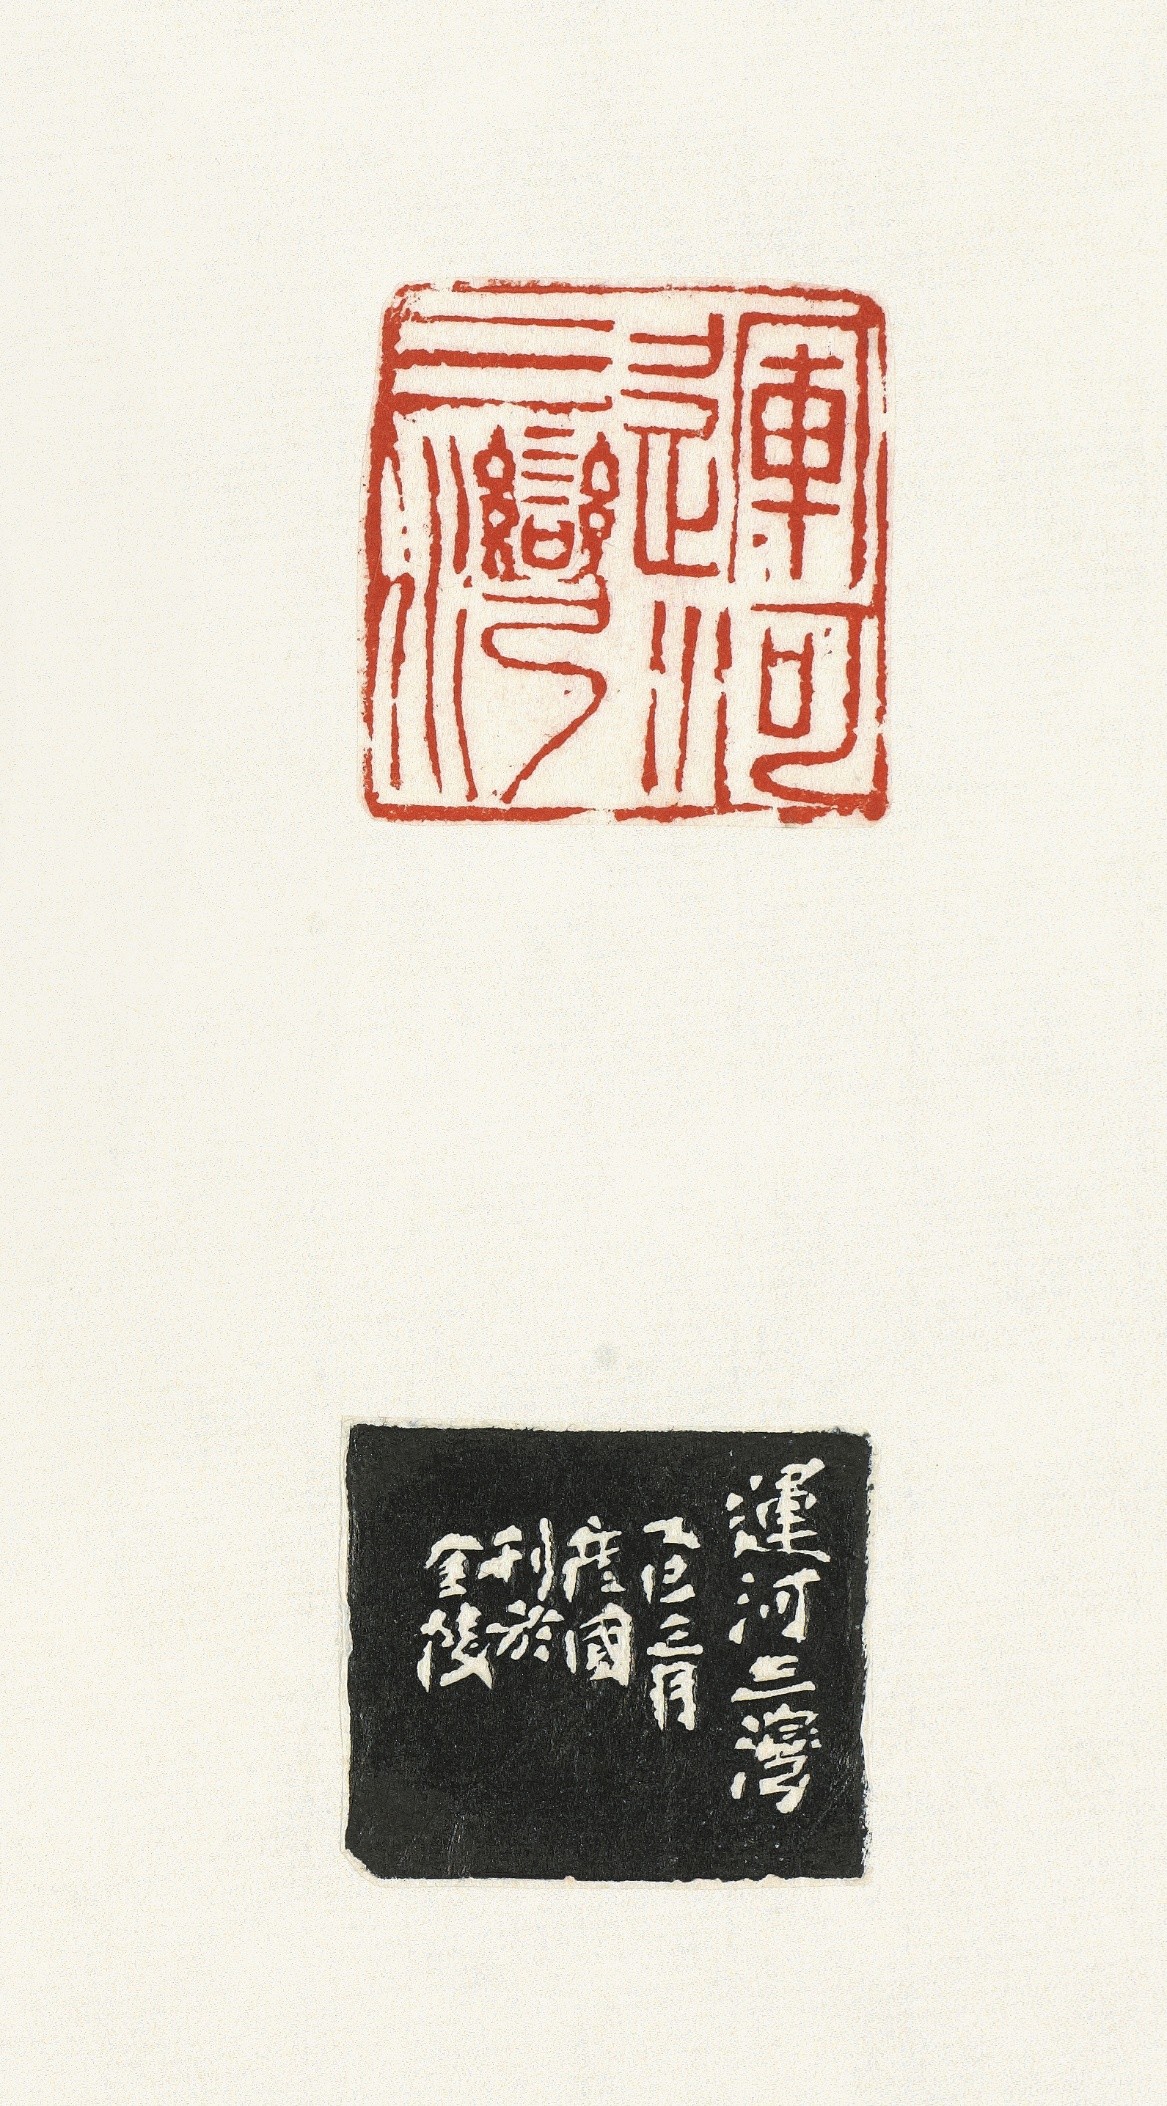 運河
三灣
運河三灣
乙巳三月
度國
刊於
金陵